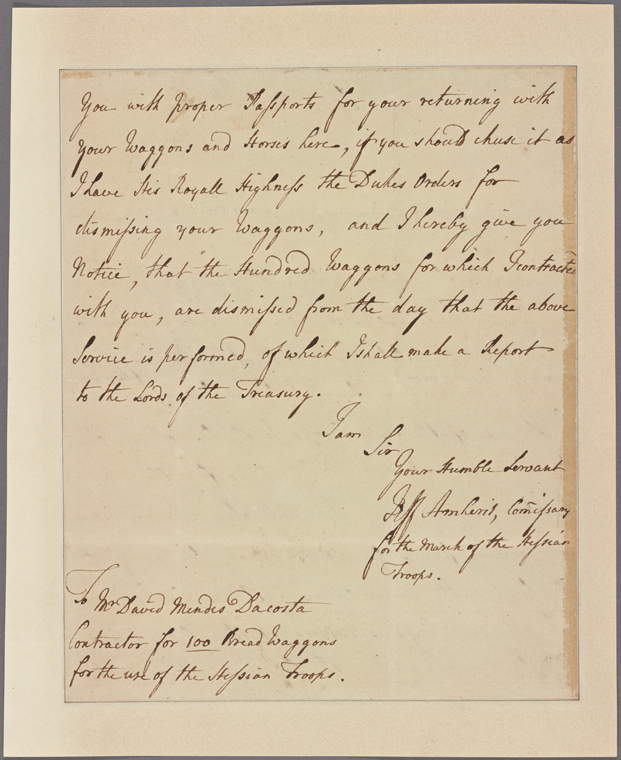 You with proper Passports for your returning with
your Waggons and Horses here, if you should chuse it as
I have His Royall Highness the Dukes Orders for
dismissing your Waggons, and I hereby give you
Notice, that the Hundred Waggons for which I contracted
with you, are dismissed from the day that the above
Service is performed, of which I shall make a Report
to the Lords of the Treasury.
I am
Sir
Your Humble Servant
Jeff Amherst, Comissary
for the March of the Hessian
Troops.
To Mr David Mendes Dacosta
Contractor for 100 Bread Waggons
for the use of the Hessian Troops.